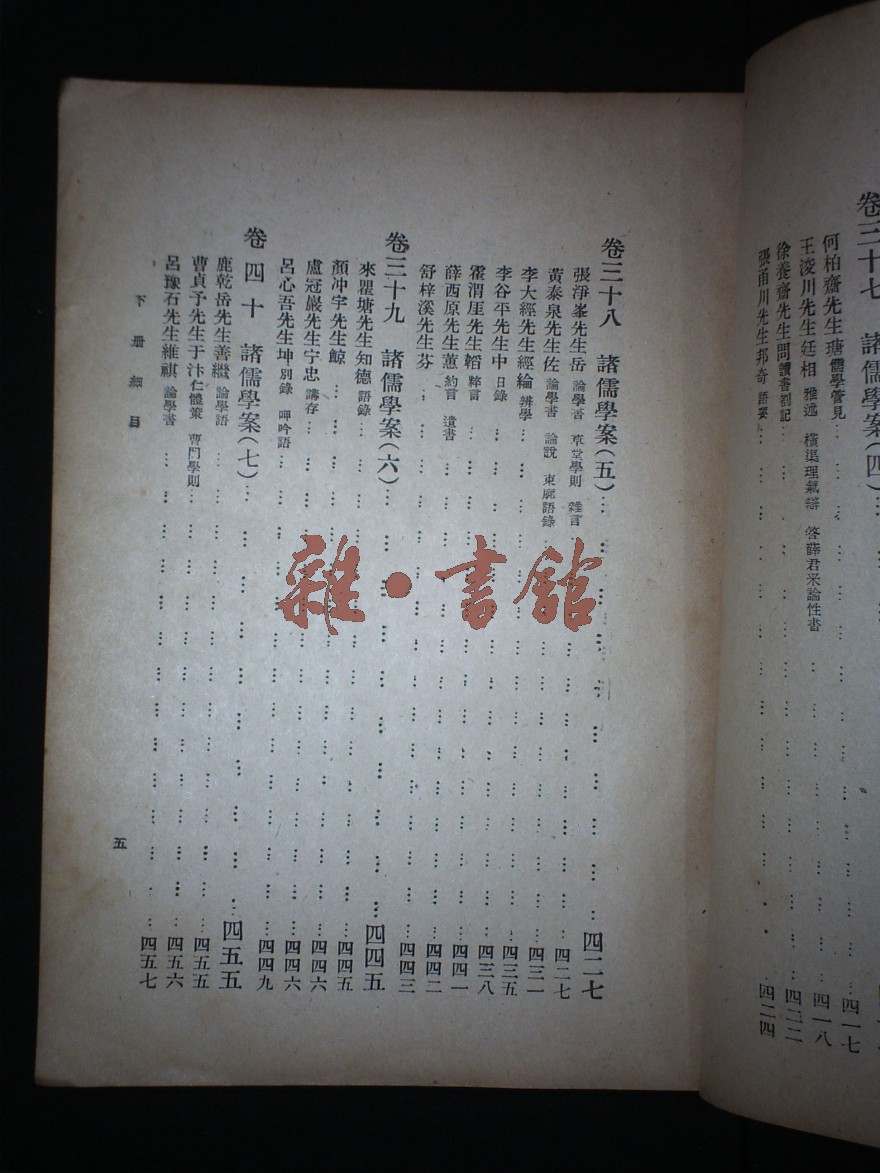 卷三十七　諸儒學案（四）
何柏齋先生瑭 儒學管見
四一七
王浚川先生廷相 雅述 橫渠理氣辯 答薛君采論性書
四一八
徐養齋先生問 讀書劄記
四二二
張甬川先生邦奇 語要
四二四
卷三十八　諸儒學案（五）
四二七
張淨峯先生岳 論學書 草堂學則 雜言
四二七
黃泰泉先生佐 論學書 論說 東廓語錄
四三一
李大經先生經綸 辨學
四三五
李谷平先生中 日錄
四三八
霍渭厓先生韜 粹言
四四一
薛西原先生蕙 約言 遺書
四四二
舒梓溪先生芬
四四三
卷三十九　諸儒學案（六）
四四五
來瞿塘先生知德 語錄
四四五
顏冲宇先生鯨
四四六
盧冠巖先生宁忠 講存
四四六
呂心吾先生坤 別錄 呻吟語
四四九
卷四十　諸儒學案（七）
四五五
鹿乾岳先生善繼 論學語
四五五
曹貞予先生于汴 仁體策 曹門學則
四五六
呂豫石先生維祺 論學書
四五七
下册細目
五
雜·書館